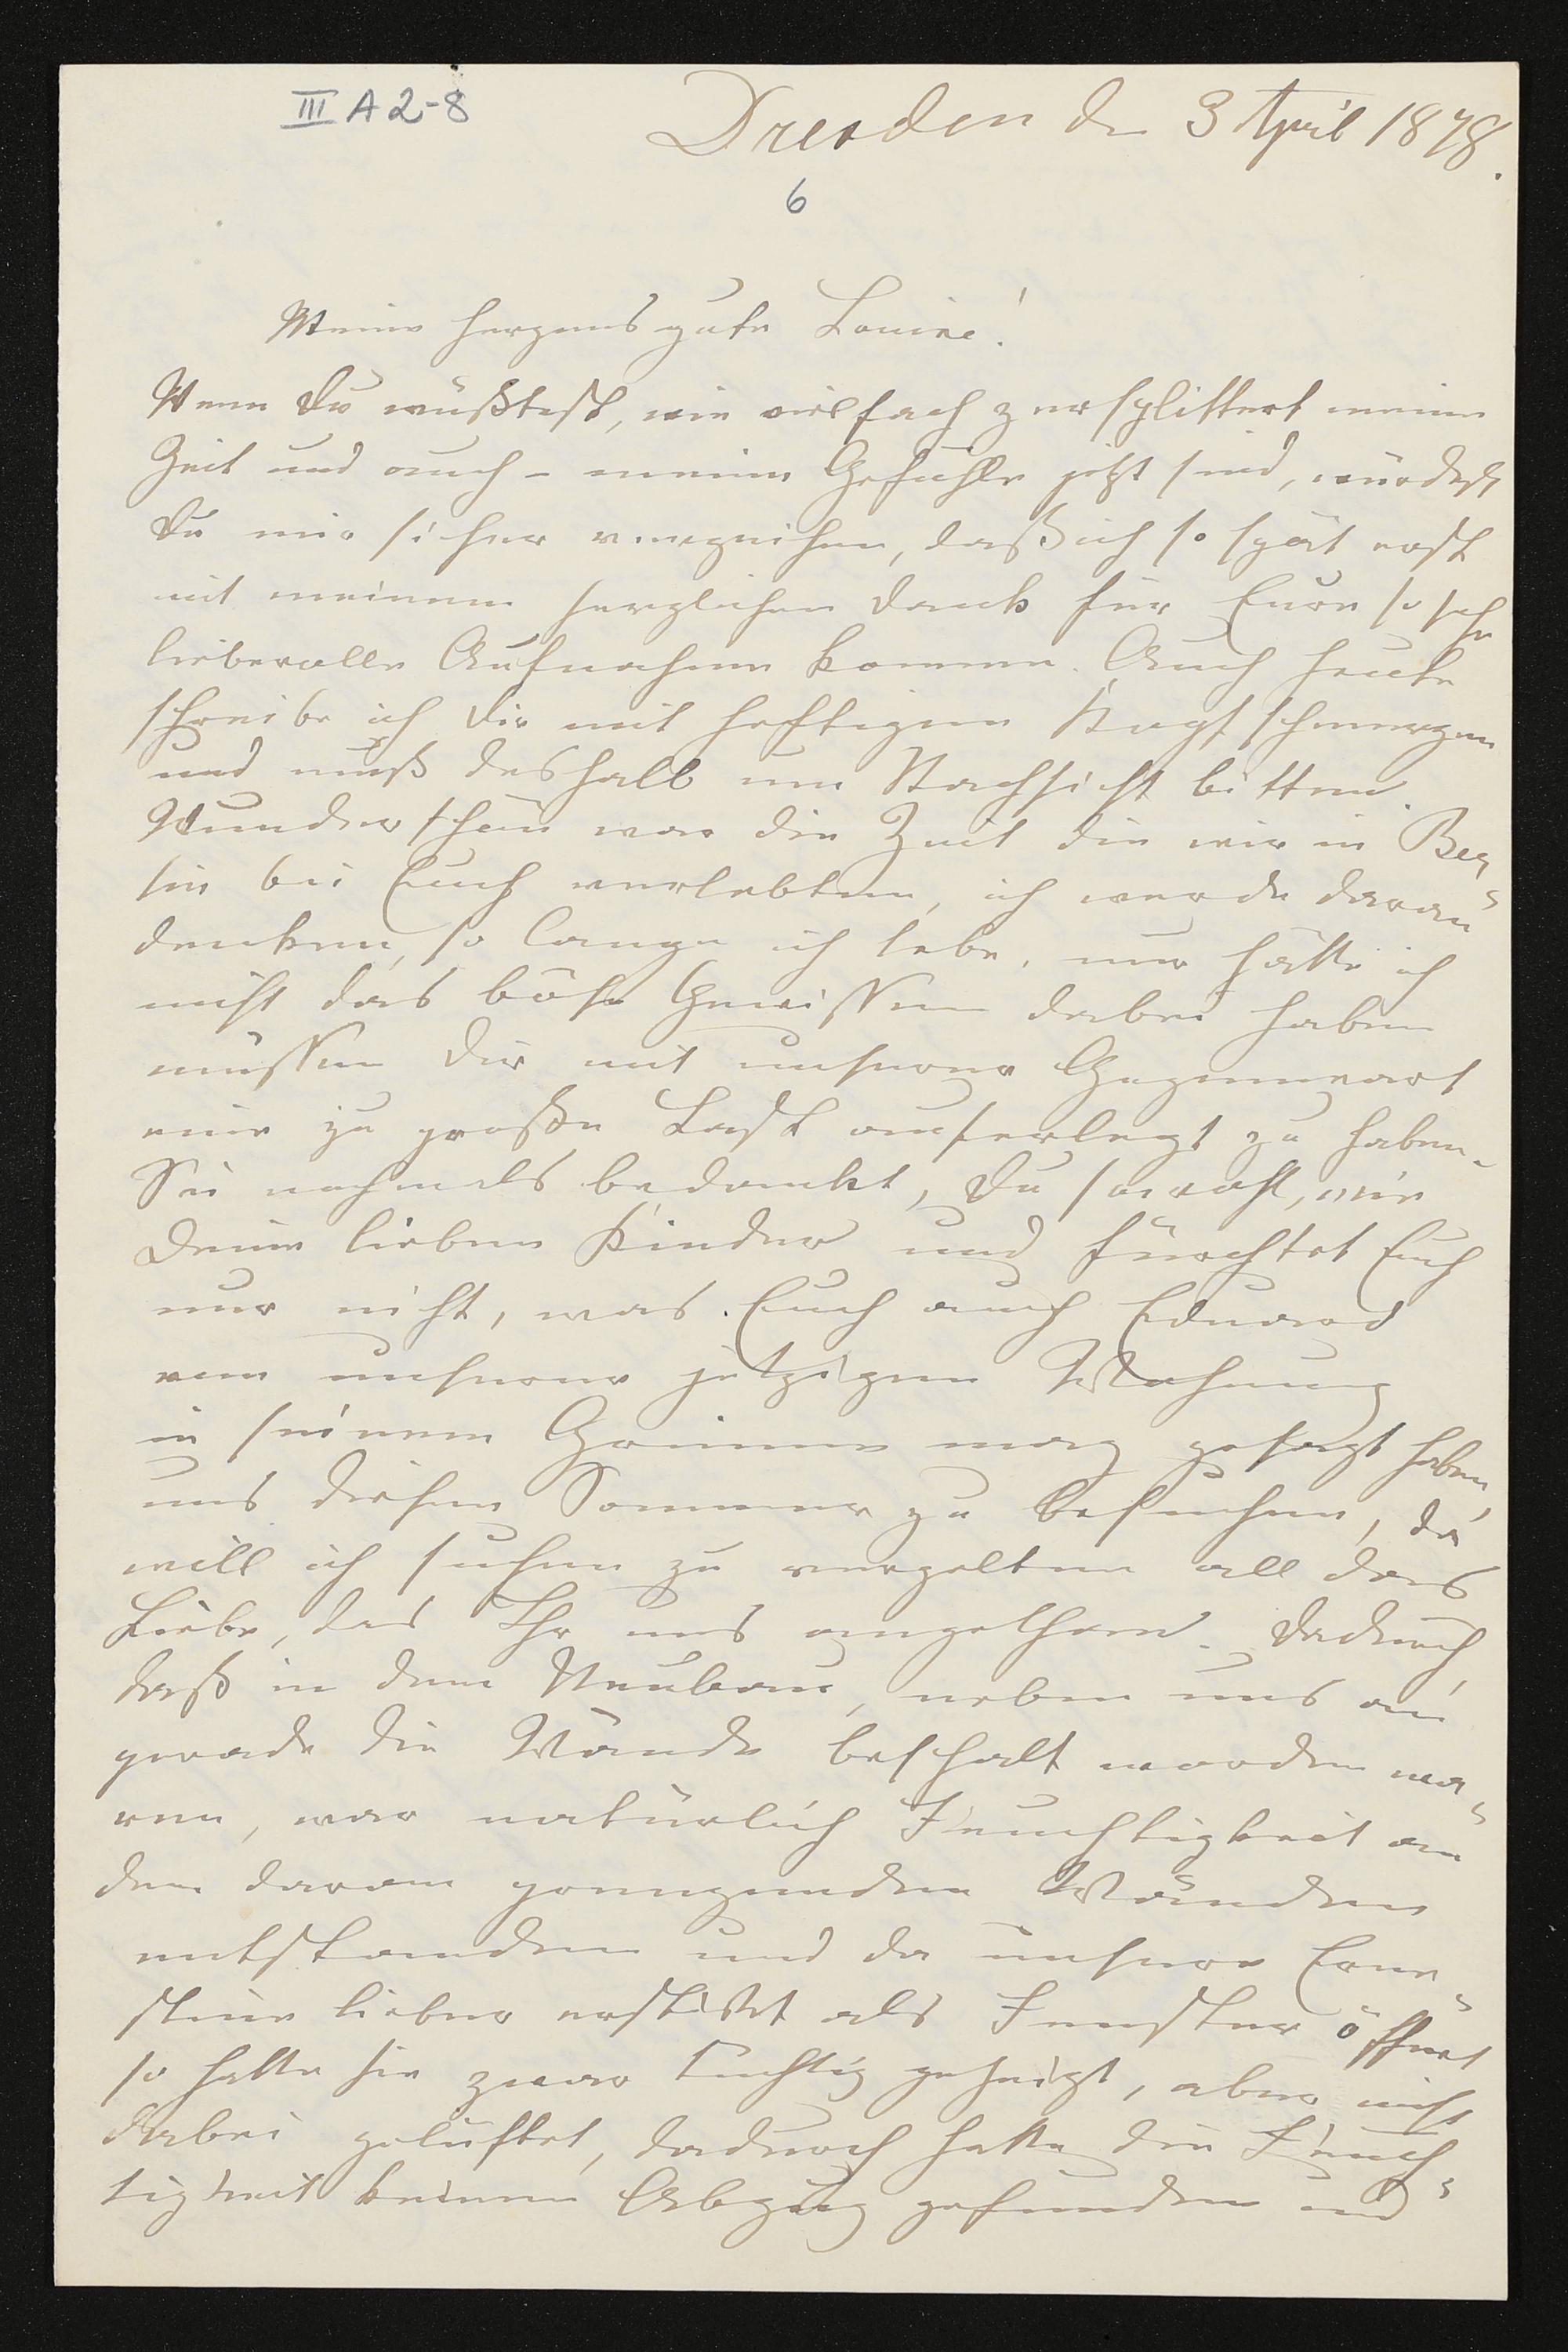 III A 2-8
Dresden den 3 April 1878.
6
Meine herzensgute Louise!
Wenn Du wüßtest, wie vielfach zersplittert meine
Zeit und auch - meine Gefühle jetzt sind, würdest
Du mir sicher verzeihen, daß ich so spät erst
mit meinem herzlichen Dank für Eure so sehr
liebevolle Aufnahme komme. Auch heute
schreibe ich Dir mit heftigen Kopfschmerzen
und muß deshalb um Nachsicht bitten.
Wunderschön war die Zeit die wir in Ber-
lin bei Euch verlebten, ich werde daran
denken, so lange ich lebe, nur hätte ich
nicht das böse Gewissen dabei haben
müssen Dir mit unserer Gegenwart
eine zu große Last auferlegt zu haben.
Sei nochmals bedankt, Du sowohl, wie
Deine lieben Kinder und fürchtet Euch
nur nicht, was Euch auch Eduard
von unserer jetzigen Wohnung
in seinem Grimme mag gesagt haben,
uns diesen Sommer zu besuchen, da
will ich suchen zu vergelten all das
Liebe, das Ihr uns angethan. Dadurch
daß in dem Neubau, neben uns an
gerade die Wände beschalt worden wa-
ren, war natürlich Feuchtigkeit an
den daran grenzenden Wänden
entstanden und da unsere Erne-
stine lieber erstickt als Fenster öffnet
so hatte sie zwar tüchtig geheizt, aber nicht
dabei gelüftet, dadurch hatte die Feuch-
tigkeit keinen Abzug gefunden und